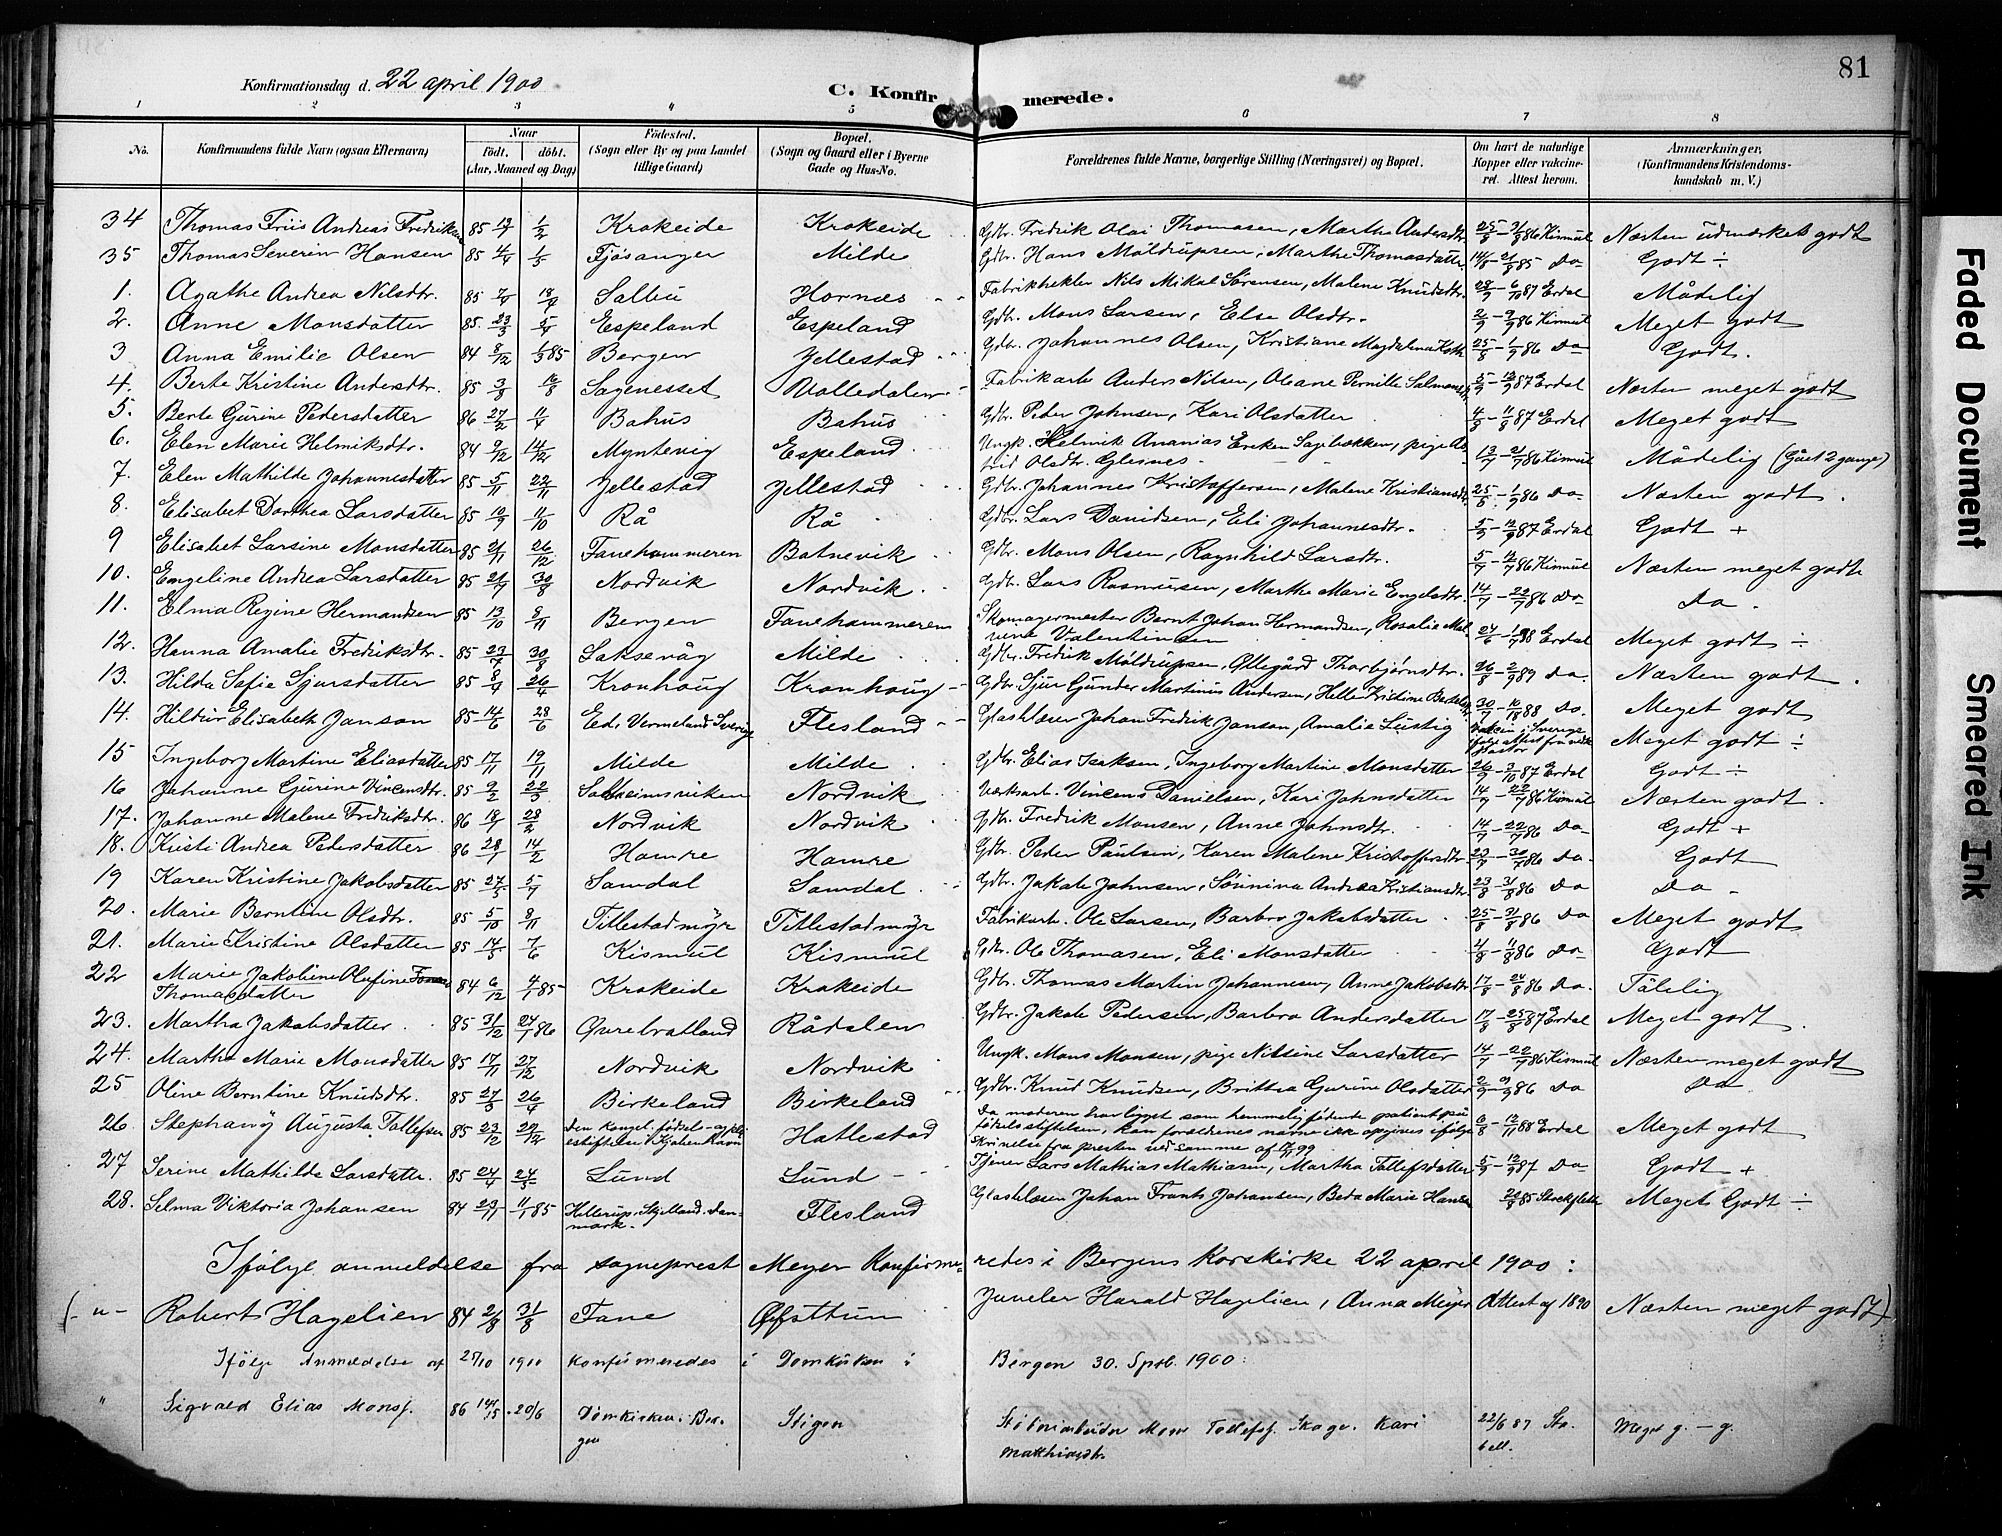 81
Konfirmationsdag d. 22 april 1900
C. Konfirmerede.
1 2 3 4 5 6 7 8
No. Konfirmandens fulde Navn (ogsaa Efternavn) Naar født. døbt. (Aar, Maaned og Dag) Fødested. (Sogn eller By og paa Landet tillige Gaard) Bopæl. (Sogn og Gaard eller i Byerne Gade og Hus-No. Forældrenes fulde Navne, borgerlige Stilling (Næringsvei) og Bopæl. Om havt de naturlige Kopper eller vakcineret. Attest herom. Anmærkninger, (Konfirmandens Kristendomskundskab m. V.)
34 Thomas Friis Andreas Fredriksen 85 Krokeide Krokeide Gdbr. Fredrik Olai Thomasen, Martha Andersdtr. Kismul Næsten udmærket godt
35 Thomas Severin Hansen 85 4/4 1/5 Fjøsanger Milde Gdbr. Hans Møldrupsen, Marthe Thomasdatter 14/8 - 21/8 85 Do Godt ÷
1. Agathe Andrea Nilsdtr. 85 7/4 Salbu Hornæs Nils Mikal Sørensen, Malene Knudsdtr. 87 Erdal Mådelig
2. Anne Monsdatter 85 23/3 5/4 Espeland Espeland Gdbr. Mons Larsen, Else Olsdtr. 2/9 - 9/9 86 Kismul Meget godt
3 Anna Emilie Olsen 84 8/12 85 Bergen Jellestad Gdbr. Johannes Olsen, Kristiane Magdalena 25/8 - 1/9 86 Do Godt.
4. Berte Kristine Andersdtr. 85 Sagenesset Valledalen Fabrikarb. Anders Nilsen, Oleane Pernille 5/9 - 12/9 87 Erdal Næsten meget godt
5. Berte Gurine Pedersdatter 86 27/2 11/4 Bahus Bahus Gdbr. Peder Johnsen, Kari Olsdatter 4/8 - 11/8 87 Erdal Meget godt
6. Elen Marie Helmiksdtr. 84 9/12 14/12 Myntevig Espeland Ungk. Helmik Ananias Eriksen, pige Astrid Olsdtr. Glesnes 13/7 - 21/7 86 Kismul Mådelig (Gået 2 gange)
7. Elen Mathilde Johannesdatter 85 5/11 22/11 Jellestad Jellestad Gdbr. Johannes Kristoffersen, Malene Kristiansdtr. 86 Do Næsten godt.
8. Elisabet Dorthea Larsdatter 85 10/9 11/10 Rå Rå Gdbr. Lars Davidsen, Eli Johannesdtr. 5/9 - 12/9 87 Erdal Godt +
9 Elisabet Larsine Monsdatter 85 21/11 26/12 Fanehammeren Batnevik Gdbr. Mons Olsen, Ragnhild Larsdtr. 5/7 - 12/7 86 Kismul Næsten meget godt
10. Engeline Andrea Larsdatter 85 21/7 30/8 Nordvik Nordvik Gdbr. Lars Rasmusen, Marthe Marie Engelsdtr. 14/7 - 22/7 86 Do Do.
11. Elma Regine Hermandsen 85 13/10 8/11 Bergen Fanehammeren Skomagermester Bernt Johan Hermandsen, Rosalie Malvene Valentinsen 24/6 - 1/7 98 Erdal Meget godt ÷
12. Hanna Amalie Fredriksdtr. 85 23/7 30/8 Laksevåg Milde Gdbr. Fredrik Møldrupsen, Ollegård Thorbjørnsdtr. 26/8 - 2/9 89 Do. Næsten godt.
13. Hilda Sofie Sjursdatter 85 8/4 26/4 Kronhoug Kronhoug Gdbr. Sjur Gunder Martinus Andersen, Helle Kristine 88 Do. Meget godt
14. Hildur Elisabeth Janson 85 14/6 28/6 Ed. Vermeland Sverige Flesland Johan Fredrik Janson, Amalie Lustig Vakcin i Sverige ifølge attest fra pastor Meget godt ÷
15 Ingeborg Martine Eliasdatter 85 17/11 19/11 Milde Milde Gdbr. Elias Isaksen, Ingeborg Martine Monsdatter 26/9 - 3/10 87 Erdal Godt ÷
16 Johanne Gurine Vincensdtr. 85 9/2 22/3 Salheimsviken Nordvik Værksarb. Vincens Danielsen, Kari Johnsdatter 14/7 - 22/7 86 Kismul Næsten godt.
17. Johanne Malene Fredriksdtr. 86 18/1 28/2 Nordvik Nordvik Gdbr. Fredrik Monsen, Anne Johnsdtr. 14/7 - 22/7 86 Do Godt +
18. Kristi Andrea Pedersdatter 86 28/1 14/2 Hamre Hamre Gdbr. Peder Paulsen, Karen Malene Kristoffersdtr. 23/7 - 30/7 86 Do. Godt
19 Karen Kristine Jakobsdatter 85 27/5 5/7 Samdal Samdal Gdbr. Jakob Johnsen, Sønniva Andrea Kristiansdtr. 23/8 - 31/8 86 Do Do
20. Marie Berntine Olsdtr. 85 5/10 8/11 Titlestadmyr Titlestadmyr Fabrikarb. Ole Larsen, Barbro Jakobsdatter 25/8 - 31/8 86 Do Meget godt
21. Marie Kristine Olsdatter 85 14/5 7/6 Kismul Kismul Gdbr. Ole Thomasen, Eli Monsdatter 4/8 - 11/8 86 Do Godt
22 Marie Jakobine Olufine Thomasdatter 84 6/12 4/1 85 Krokeide Krokeide Gdbr. Thomas Martin Johannesen, Anne Jakobsdtr 17/8 - 24/8 86 Do. Tålelig
23. Martha Jakobsdatter 85 31/12 24/1 86 Øvrebratland Rådalen Gdbr. Jakob Pedersen, Barbro Andersdatter 17/8 - 25/8 87 Erdal Meget godt.
24. Marthe Marie Monsdatter 85 17/11 27/12 Nordvik Nordvik Ungk. Mons Monsen, pige Nilsine Larsdatter 14/7 - 22/7 86 Kismul Næsten meget godt
25 Oline Berntine Knudsdtr. 85 27/3 26/4 Birkeland Birkeland Gdbr. Knud Knudsen, Brittha Gurine Olsdatter 2/9 - 9/9 86 Do Do
26. Stephany Augusta Tollefsen 85 23/12 29/12 Den kongel. fødsel- og pleiestiftelse i Kjøbenhavn Hatlestad Da moderen har ligget som hemmelig fødende patient på fødselsstiftelsen, kan forældrenes navne ikke opgives ifølge skrivelse fra presten ved samme af 99 88 Erdal Meget godt
27 Serine Mathilde Larsdatter. 85 24/4 24/5 Lund Lund Tjener Lars Mathias Mathiasen, Martha Tollefsdatter 5/9 - 12/9 87 Do Godt +
28. Selma Viktoria Johansen 84 23/11 11/1 85 Hellerup. Sjelland. Danmark. Flesland Johan Frants Johansen, Beda Marie 85 Meget Godt ÷
Ifølge anmeldelse fra sogneprest Meyer Konfirmeredes i Bergens Korskirke 22 april 1900:
(-"- Robert Hagelien 84 2/8 31/8 Fane Øfsttun Juveler Harald Hagelien, Anna Meyer Attest af 1890 Næsten meget godt)
Ifølge Anmeldelse af 25/10 1910 konfirmeredes i Domkirken i Bergen 30. Spbr. 1900:
" Sigvald Elias Monsf. 86 20/6 Domkirken i Bergen Stigen Støberiarbeider Mons Tollefsf. Skage. Kari Matthiasdtr. 22/6 87 Meget g. - g.
Faded Document
Smeared Ink